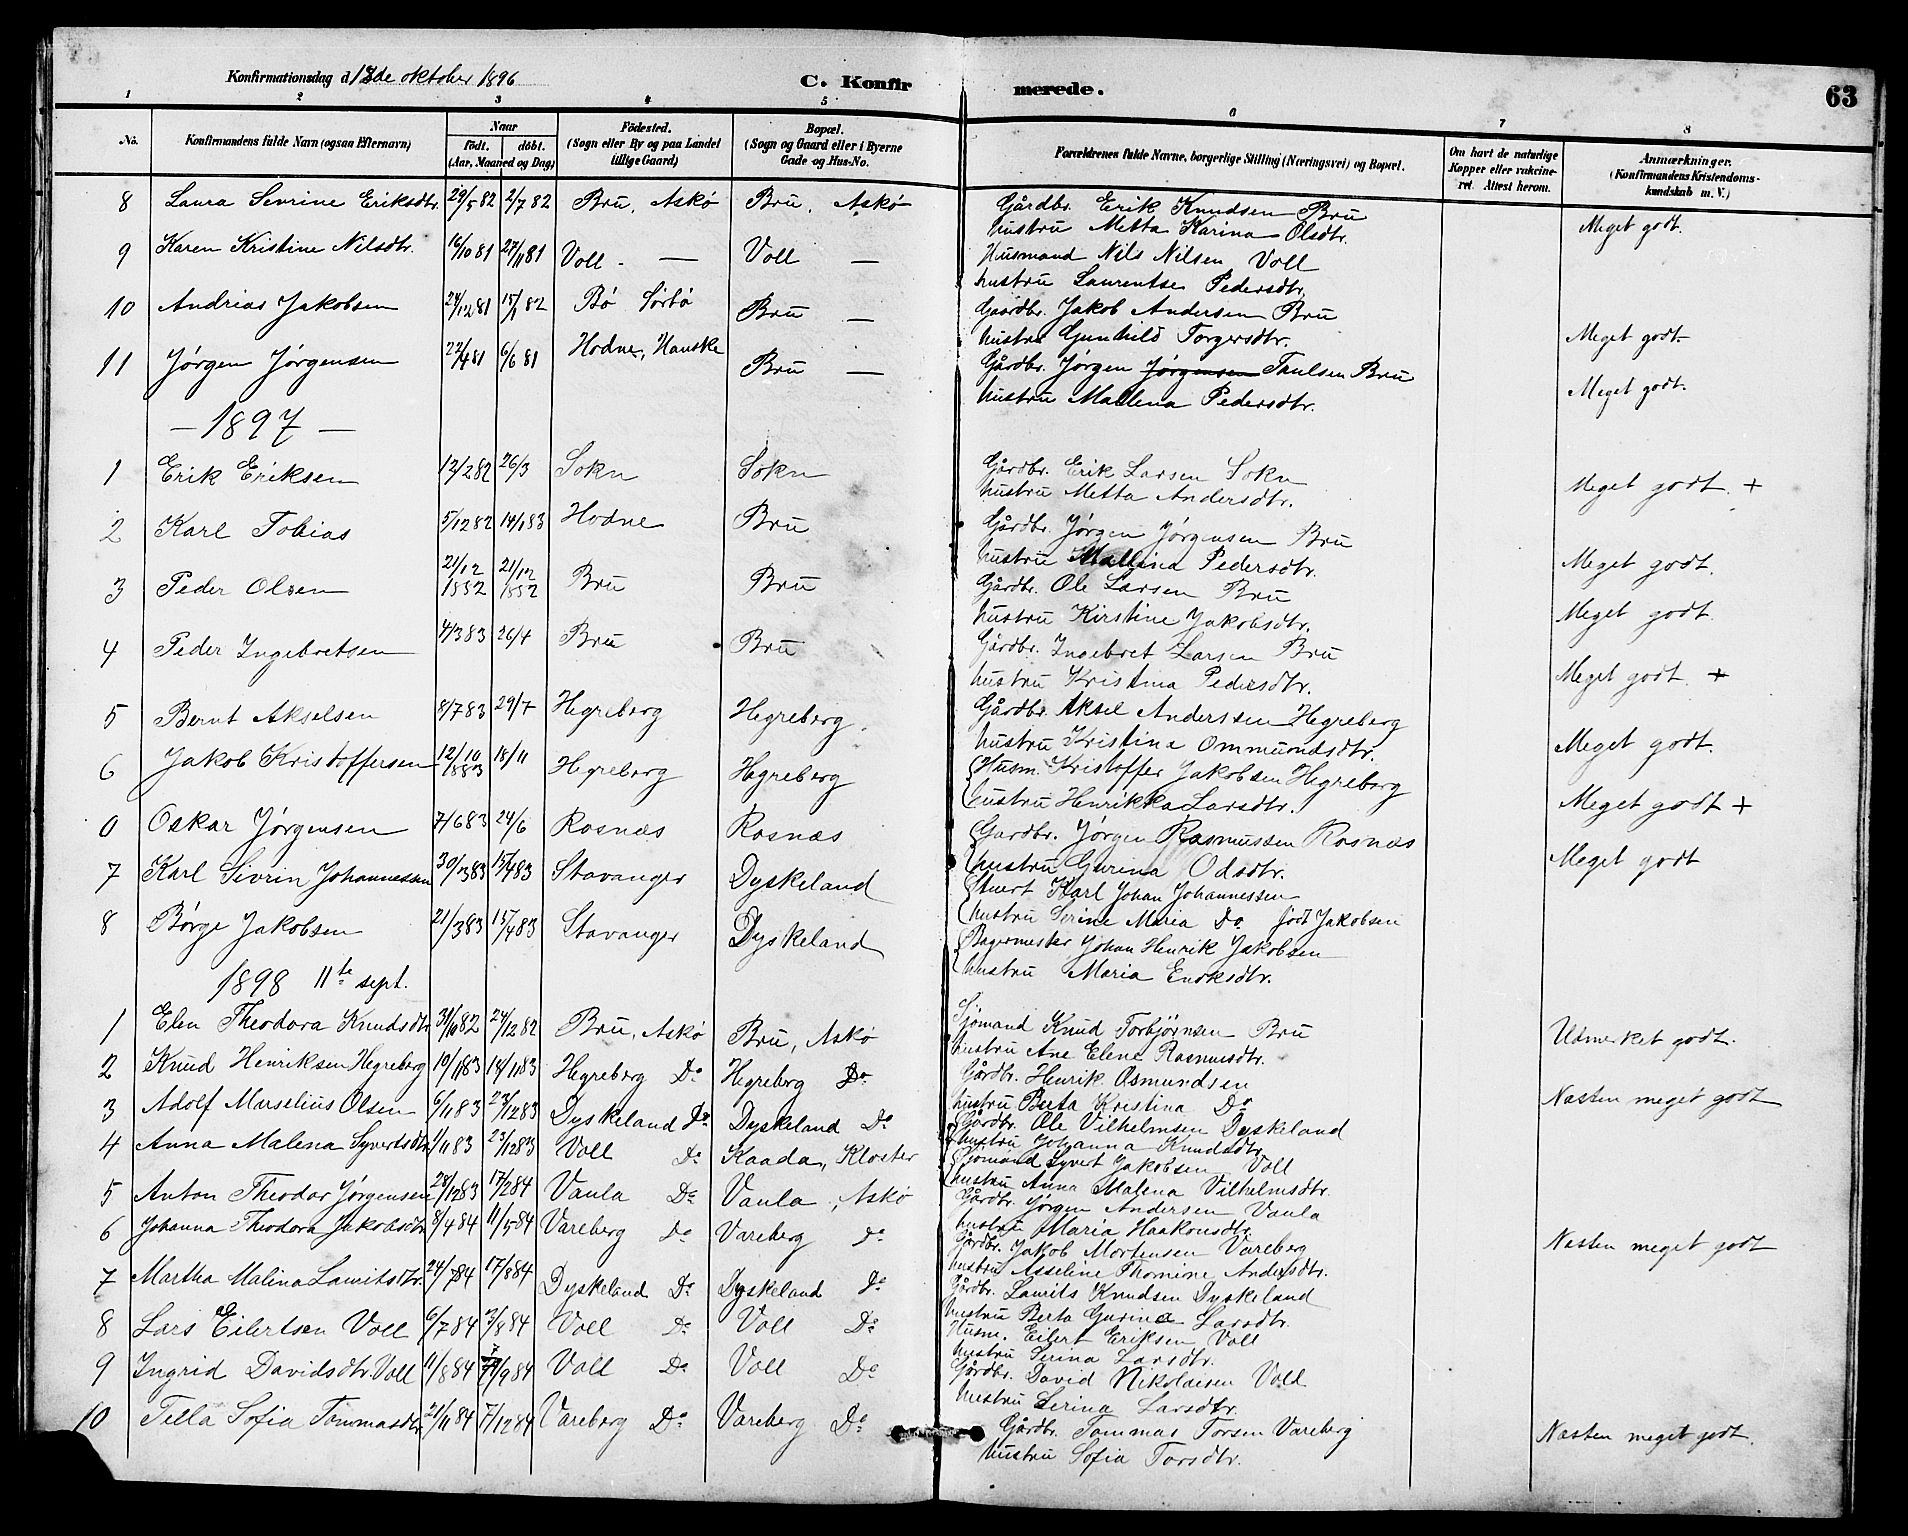 Konfirmationsdag d. 18de oktober 1896 C. Konfirmerede. 63
1 2 3 4 5 6 7 8
No. Konfirmandens fulde Navn (ogsaa Efternavn) Naar født. døbt. (Aar, Maaned og Dag) Fødested. (Sogn eller By og paa Landet tillige Gaard) Bopæl. (Sogn og Gaard eller i Byerne Gade og Hus-No. Forældrenes fulde Navne, borgerlige Stilling (Næringsvei) og Bopæl. Om havt de naturlige Kopper eller vakcineret. Attest herom. Anmærkninger. (Konfirmandens Kristendomskundskab m. V.)
8 Laura Sevrine Eriksdtr. 29/5 82 2/7 82 Bru, Askø Bru, Askø Gårdbr. Erik Knudsen Bru Meget godt.
hustru Metta Karina Olsdtr.
9 Karen Kristine Nilsdtr. 16/10 81 27/11 81 Voll - — Voll — Husmand Nils Nilsen Voll
hustru Laurentse Pedersdtr.
10 Andrias Jakobsen 24/12 81 15/1 82 Bø Sørbø Bru — Gaardbr. Jakob Andersen Bru Meget godt.
hustru Gunhild Torgersdtr.
11 Jørgen Jørgensen 22/4 81 6/6 81 Hodne, Hauske Bru — Gårdbr. Jørgen Jørgensen Bru Meget godt.
hustru Mallena Pedersdtr.
— 1897 —
1 Erik Eriksen 12/2 82 26/3 Sokn Sokn Gårdbr. Erik Larsen Sokn Meget godt. +
hustru Metta Andersdtr.
2 Karl Tobias 5/12 82 14/1 83 Hodne Bru Gårdbr. Jørgen Jørgensen Bru Meget godt.
hustru Mallina Pedersdtr.
3 Peder Olsen 21/12 1882 21/12 1882 Bru Bru Gårdbr. Ole Larsen Bru Meget godt.
hustru Kirstine Jakobsdtr.
4 Peder Ingebretsen 4/3 83 26/4 Bru Bru Gårdbr. Ingebret Larsen Bru Meget godt +
hustru Kristina Pedersdtr.
5 Bernt Akselsen 8/7 83 29/7 Hegreberg Hegreberg. Gårdbr. Aksel Anderssen Hegreberg Meget godt.
hustru Kristine Ommundsdtr.
6 Jakob Kristoffersen 12/10 1883 18/11 Hegreberg Hegreberg Husm. Kristoffer Jakobsen Hegreberg Meget godt +
hustru Henrikka Larsdtr.
0 Oskar Jørgensen 7/6 83 24/6 Rosnæs Rosnæs Gardbr. Jørgen Rasmussen Rosnæs Meget godt
hustru Gurina Odsdtr.
7 Karl Sivrin Johannessen 30/3 83 15/4 83 Stavanger Dyskeland Karl Johan Johannessen
hustru Serine Maria Do født Jakobsen
8 Børge Jakobsen 21/3 83 15/4 83 Stavanger Dyskeland Bagermester Johan Henrik Jakobsen
hustru Maria Enoksdtr.
1898 11te sept.
1 Elen Theodora Knudsdtr 31/10 82 24/12 82 Bru, Askø Bru, Askø Sjømand Knud Torbjørnsen Bru Udmerket godt.
hustru Ane Elene Rasmusdtr.
2 Knud Henriksen Hegreberg 10/11 83 18/11 83 Hegreberg Do Hegreberg Do Gårdbr. Henrik Osmundsen
hustru Berta Kristina Do
3 Adolf Marselius Olsen 6/11 83 23/12 83 Dyskeland Do Dyskeland Do Gårdbr. Ole Vilhelmsen Dyskeland Næsten meget godt
hustru Johanna Knudsdtr
4 Anna Malena Syvertsdtr 1/11 83 23/12 83 Voll Do Kaada, Kloster Sjømand Syvert Jakobsen Voll
hustru Anna Malena Vilhelmsdtr.
5 Anton Theodor Jørgensen 28/12 83 17/2 84 Vaula Do Vaula, Askø Gårdbr. Jørgen Andersen Vaula
hustru Maria Haakonsdtr.
6 Johanna Theodora Jakobsdtr 8/4 84 11/5 84 Vareberg Do Vareberg Do Gårdbr. Jakob Mortensen Vareberg Næsten meget godt
hustru Asseline Thomine Andersdtr.
7 Martha Malina Lauritsdtr. 24/7 84 17/8 84 Dyskeland Do Dyskeland Do Gårdbr. Laurits Knudsen Dyskeland
hustru Berta Gurine Larsdtr.
8 Lars Eilertsen Voll 6/7 84 3/8 84 Voll Do Voll Do Husm. Eilert Eriksen Voll
hustru Serina Larsdtr.
9 Ingrid Davidsdtr. Voll 11/8 84 7/9 84 Voll Do Voll Do Gårdbr. David Nikolaisen Voll
hustru Serina Larsdtr.
10 Tella Sofia Tommasdtr. 21/11 84 7/12 84 Vareberg Do Vareberg Do Gårdbr. Tommas Torsen Vareberg Næsten meget godt.
hustru Sofia Torsdtr.